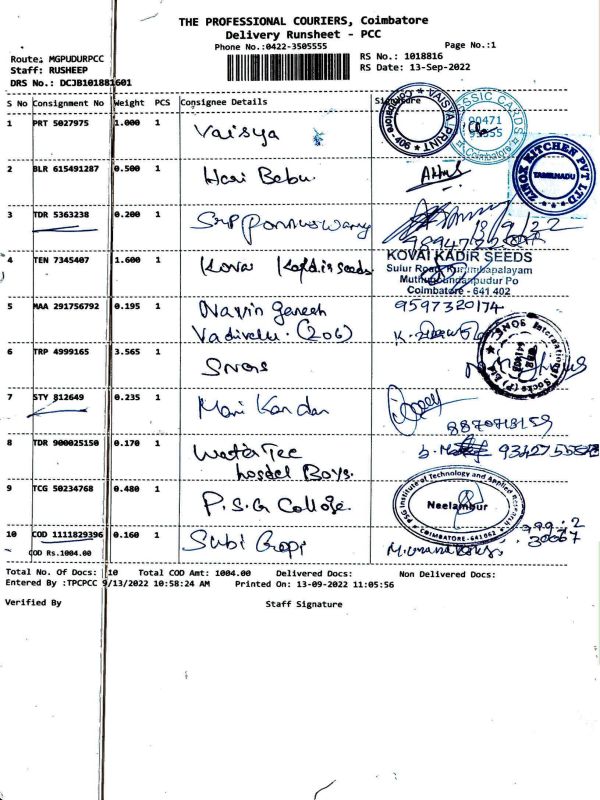 THE PROFESSIONAL COURIERS, Coimbatore
Delivery Runsheet - PCC
Phone No.:0422-3505555
Page No.:1
Route: MGPUDURPCC
RS No.: 1018816
Staff: RUSHEEP
RS Date: 13-Sep-2022
DRS No.: DCJB101881601
S No Consignment No Weight PCS Consignee Details Signature
1 PRT 5027975 1.000 1 Vaisya
VAISYA PRINT Coimbatore
CLASSIC CARDS
Coimbatore
2 BLR 615491287 0.500 1 Hari Babu
ZINOX KITCHEN PVT LTD.
TAMILNADU
3 TDR 5363238 0.200 1
13/9/22
4 TEN 7345407 1.600 1 Kovai Kadir seeds
KOVAI KADIR SEEDS
Sulur Road, Kurumbapalayam
Muthugoundanpudur Po
Coimbatore - 641 402
5 MAA 291756792 0.195 1 Navin Ganesh
Vadivelu. (206)
9597320174
6 TRP 4999165 3.565 1 SNQS
SNQS International Socks (P) Ltd
7 STY 812649 0.235 1 Mani Kandan
8870713159
8 TDR 900025150 0.170 1 Water Tec
hostel Boys.
9 TCG 50234768 0.480 1 P.S.G College.
PSG Institute of Technology and Applied Research
Neelambur
COIMBATORE-641 062
10 COD 1111829396 0.160 1 Subi Gopi
COD Rs.1004.00
Total No. Of Docs: 10 Total COD Amt: 1004.00 Delivered Docs: Non Delivered Docs:
Entered By :TPCPCC 9/13/2022 10:58:24 AM Printed On: 13-09-2022 11:05:56
Verified By Staff Signature